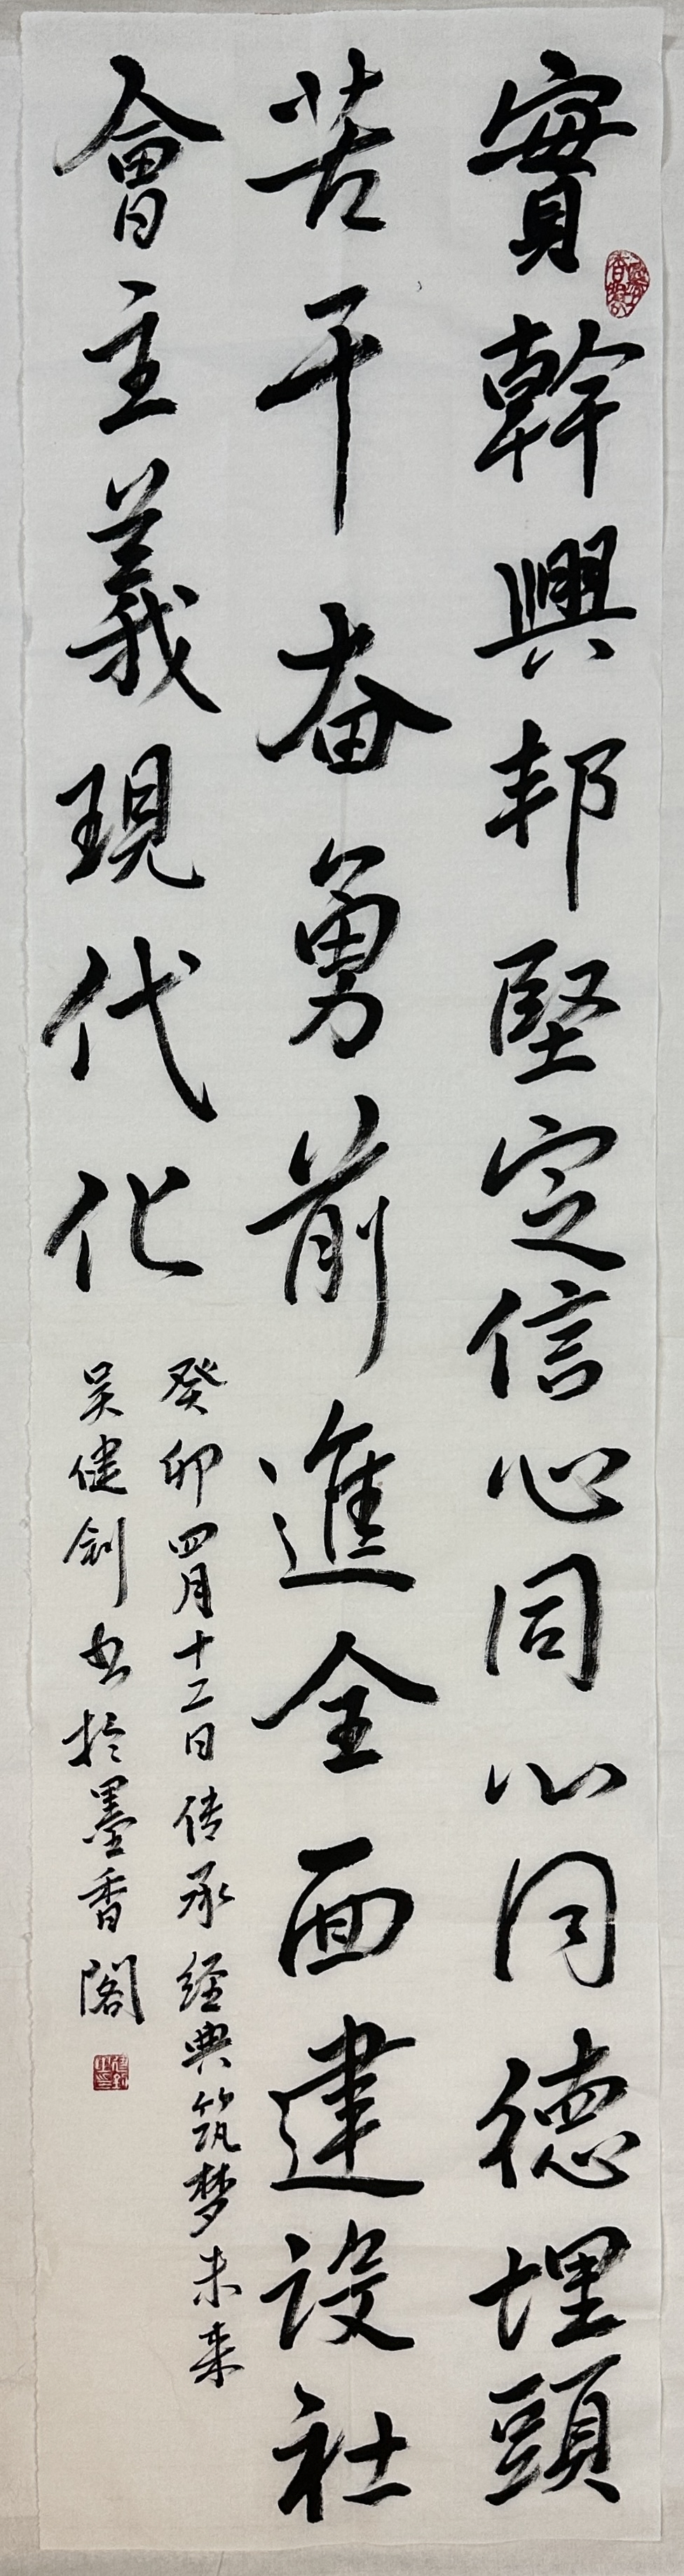 實幹興邦堅定信心同心同德埋頭
苦干奋勇前進全面建設社
會主義現代化
癸卯四月十二日传承经典筑梦未来
吴健剑书於墨香阁